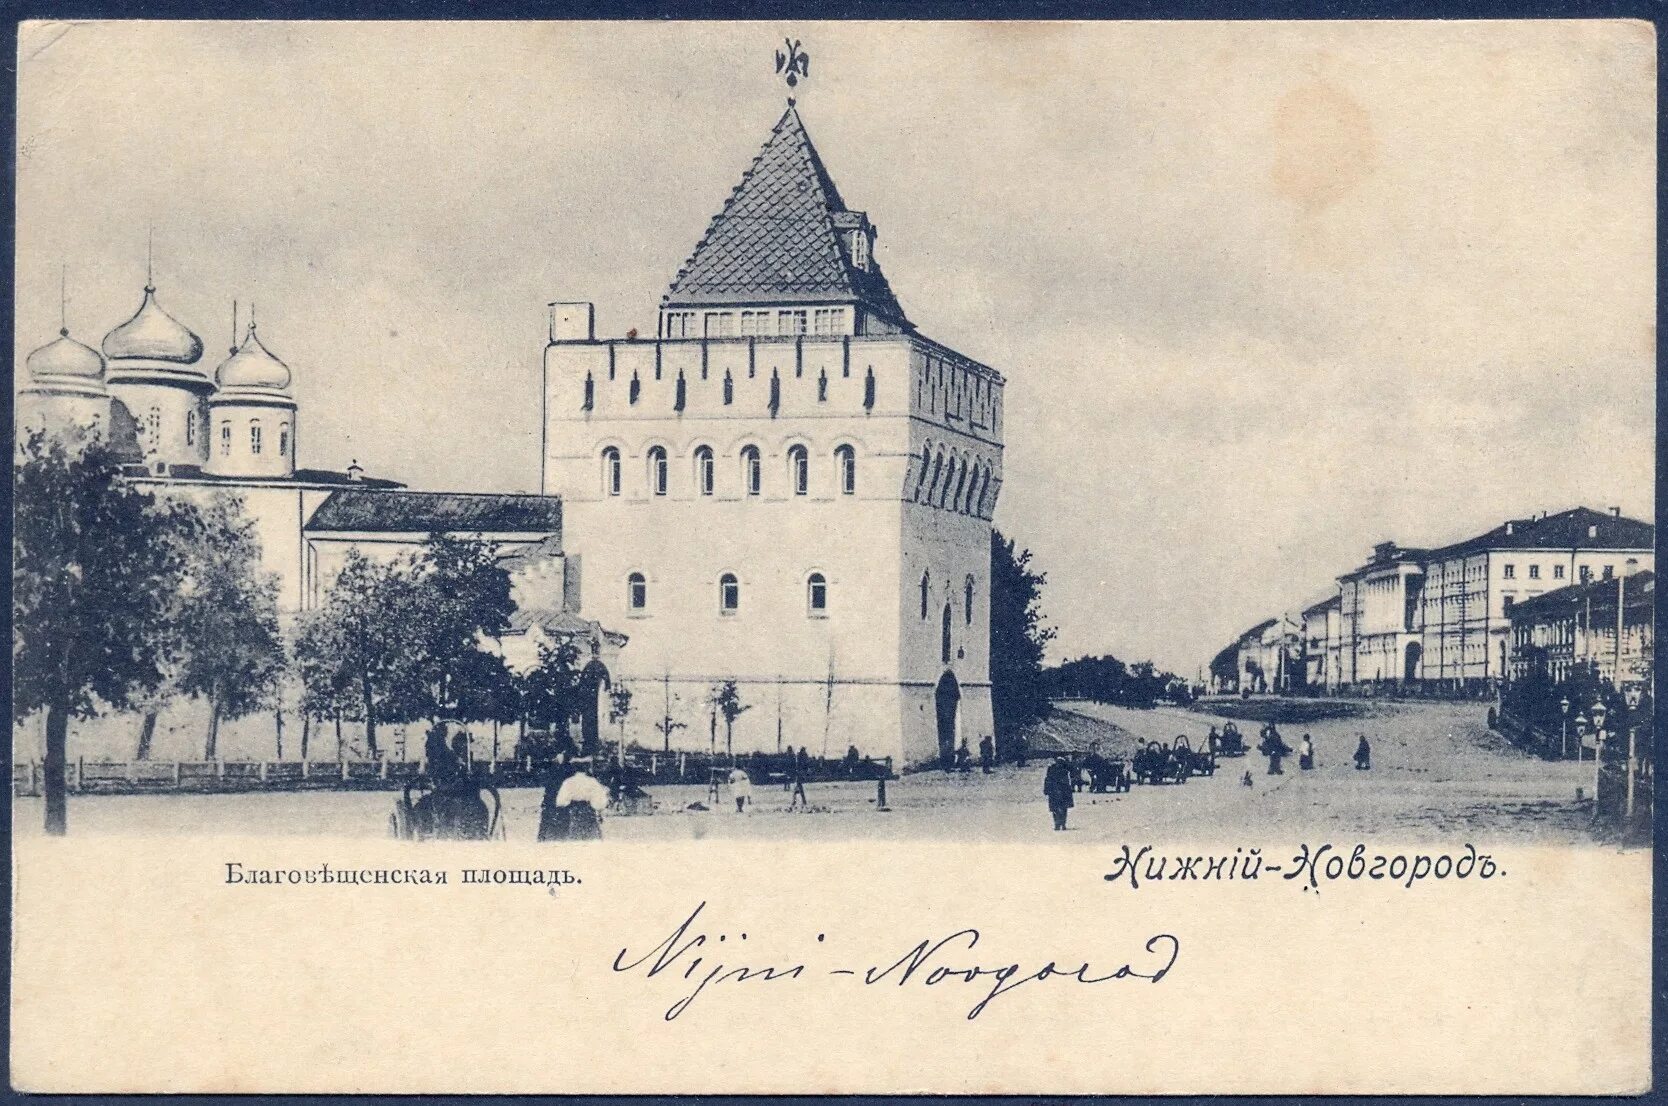 Благовѣщенская площадь.
Нижній-Новгородъ.
Nijni-Novgorod